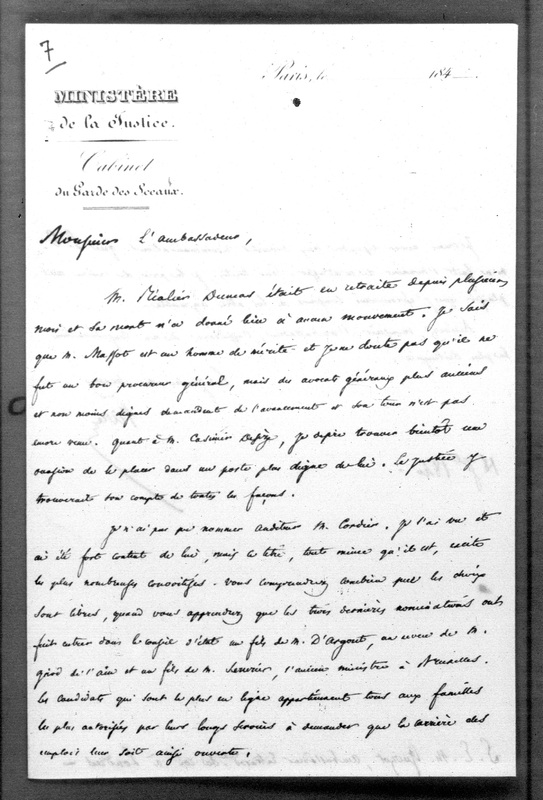 7
Paris, le 184
MINISTÈRE
de la Justice.
Cabinet
du Garde des Sceaux.
Monsieur l'ambassadeur,
M. Réalier Dumas était en retraite depuis plusieurs
mois et sa mort n'a donné lieu à aucun mouvement. Je sais
que M. Massot est un homme de mérite et je ne doute pas qu'il ne
fut un bon procureur général, mais des avocats généraux plus anciens
et non moins dignes demandent de l'avancement et son tour n'est pas
encore venu. quant à M. Casimir, j'espère trouver bientôt une
occasion de le placer dans un poste plus digne de lui. La justice y
trouverait son compte de toutes les façons.
Je n'ai pas pu nommer auditeur M. Cordier. Je l'ai vu et
ai été fort content de lui, mais ce titre, tout mince qu'il est, excite
les plus nombreuses convoitises. vous comprendrez combien peu les choix
sont libres, quand vous apprendrez que les trois dernières nominations ont
fait entrer dans le conseil d'état un fils de M. D'Argout, un neveu de M.
girod de l'ain et un fils de M. Serurier, l'ancien ministre à Bruxelles.
les candidats qui sont le plus en ligne appartiennent tous aux familles
les plus autorisées par leurs longs services à demander que la carrière des
emplois leur soit ainsi ouverte.